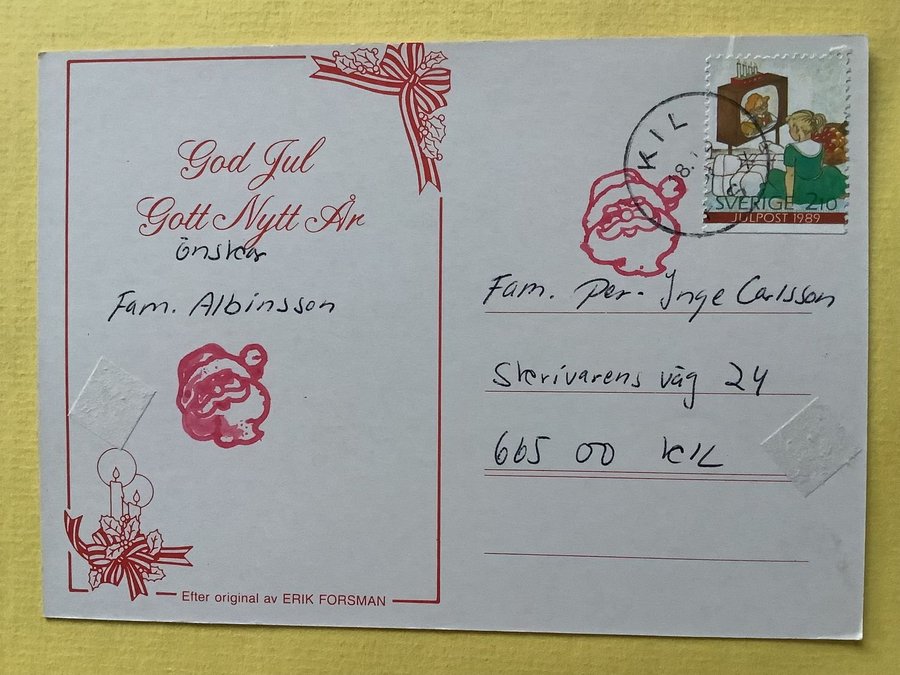 God Jul
Gott Nytt År
önskar
Fam. Albinsson
Efter original av ERIK FORSMAN
KIL
18.
SVERIGE 2.10
JULPOST 1989
Fam. Per-Inge Carlsson
Skrivarens väg 24
665 00 KIL